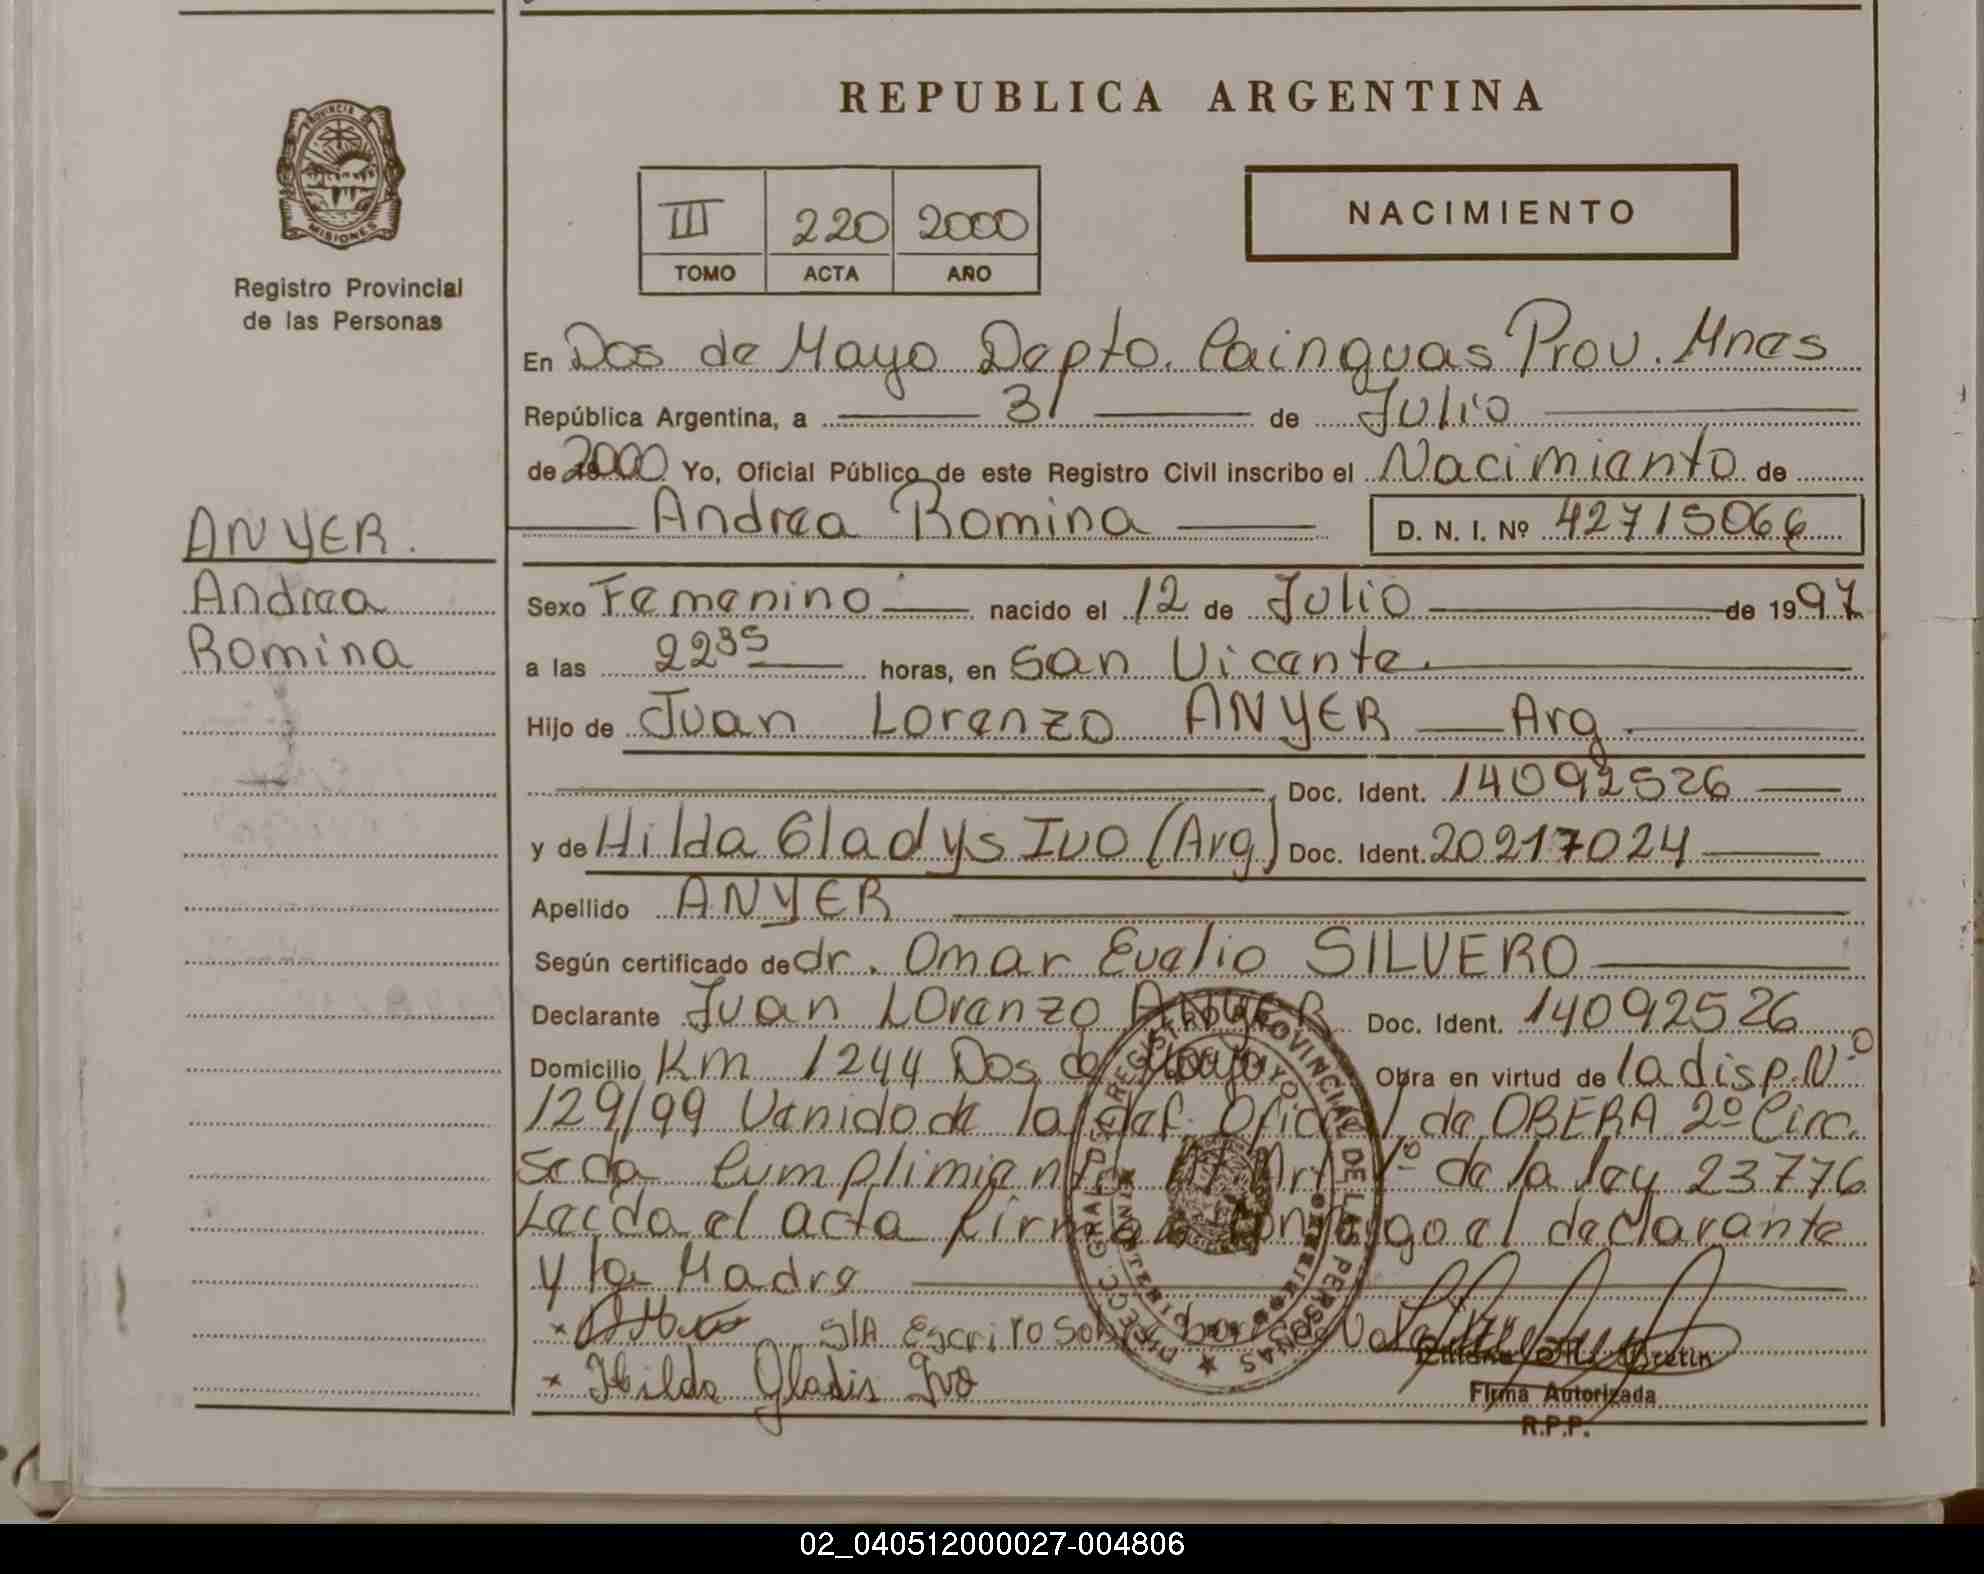 REPUBLICA ARGENTINA
PROVINCIA DE
MISIONES
Registro Provincial
de las Personas
III 220 2000
TOMO ACTA AÑO
NACIMIENTO
En Dos de Mayo Depto. Cainguas Prov. Mnes
República Argentina, a 31 de Julio
de 2000 Yo, Oficial Público de este Registro Civil inscribo el Nacimiento de
Andrea Romina D. N. I. Nº 42715066
ANYER.
Andrea
Romina
Sexo Femenino nacido el 12 de Julio de 1997
a las 2235 horas, en San Vicente.
Hijo de Juan Lorenzo ANYER Arg
Doc. Ident. 14092526
y de Hilda Gladys IVO (Arg) Doc. Ident. 20217024
Apellido ANYER
Según certificado de dr. Omar Evelio SILVERO
Declarante Juan Lorenzo ANYER Doc. Ident. 14092526
Domicilio Km 1244 Dos de Mayo Obra en virtud de la disp. Nº
129/99 Venido de la def. Oficial de OBERA 2º Circ.
Se da Cumplimiento Al Art 1º de la ley 23776
Leída el acta firman conmigo el declarante
y la Madre
S/A Escrito sobre borrado Vale
Hilda Gladis Ivo
DIRECC. GRAL. DEL REGISTRO PROVINCIAL DE LAS PERSONAS
Firma Autorizada
R.P.P.
02_040512000027-004806